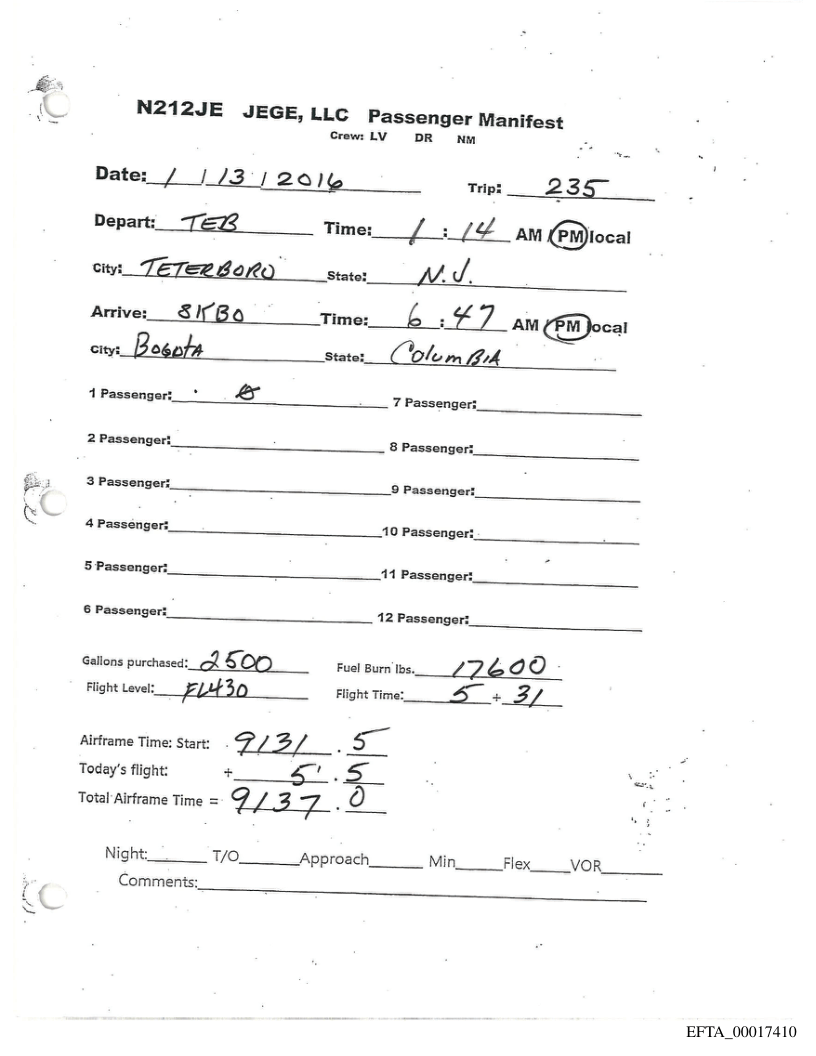 N212JE JEGE, LLC Passenger Manifest
Crew: LV DR NM
Date: 1 / 13 / 2016 Trip: 235
Depart: TEB Time: 1 : 14 AM / PM local
City: TETERBORO State: N.J.
Arrive: SKBO Time: 6 : 47 AM / PM local
City: BOGOTA State: COlumBIA
1 Passenger: 7 Passenger:
2 Passenger: 8 Passenger:
3 Passenger: 9 Passenger:
4 Passenger: 10 Passenger:
5 Passenger: 11 Passenger:
6 Passenger: 12 Passenger:
Gallons purchased: 2500 Fuel Burn lbs. 17600
Flight Level: FL430 Flight Time: 5 + 31
Airframe Time: Start: 9131 . 5
Today's flight: + 5 . 5
Total Airframe Time = 9137 . 0
Night: T/O Approach Min Flex VOR
Comments:
EFTA_00017410